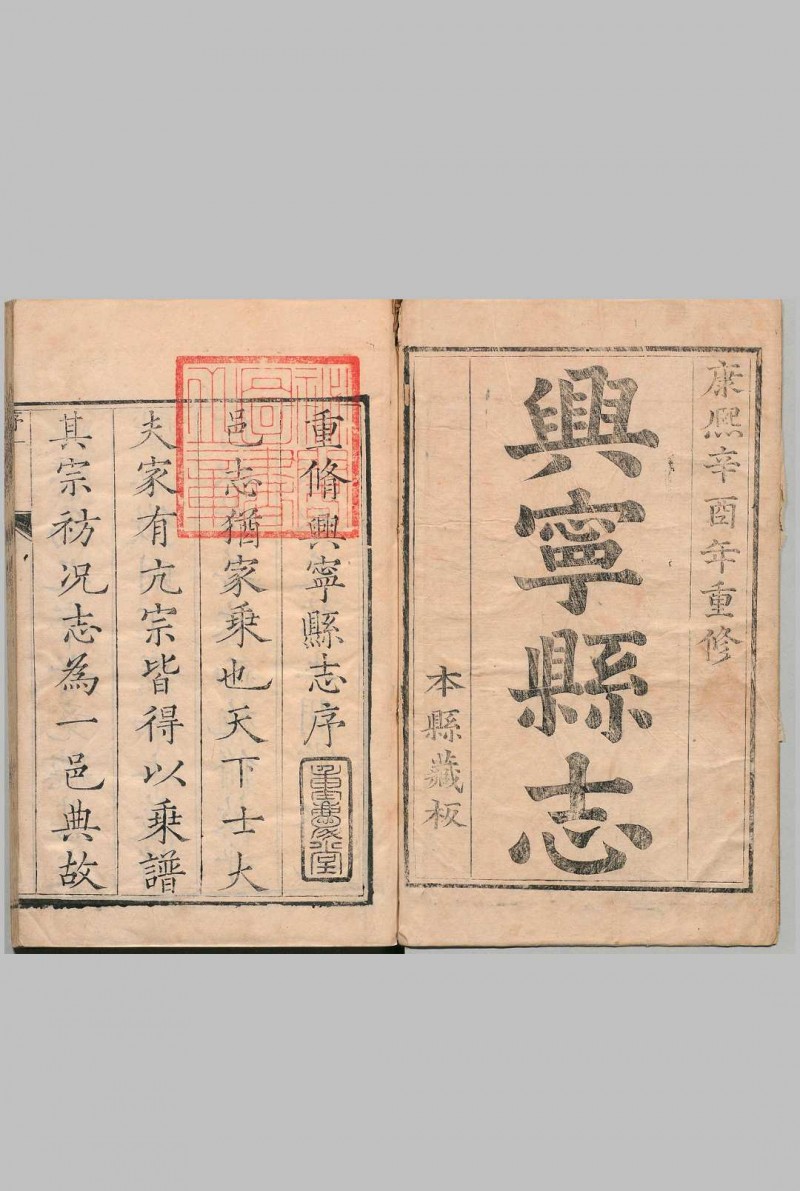 康熙辛酉年重修
興寧縣志
本縣藏板
重脩興寧縣志序
邑志猶家乗也天下士大
夫家有亢宗皆得以乗譜
其宗祊况志為一邑典故